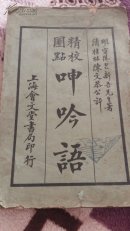 明寧陵呂新吾先生著
清桂林陳文恭公評
精校
圈點
呻吟語
上海會文堂書局印行